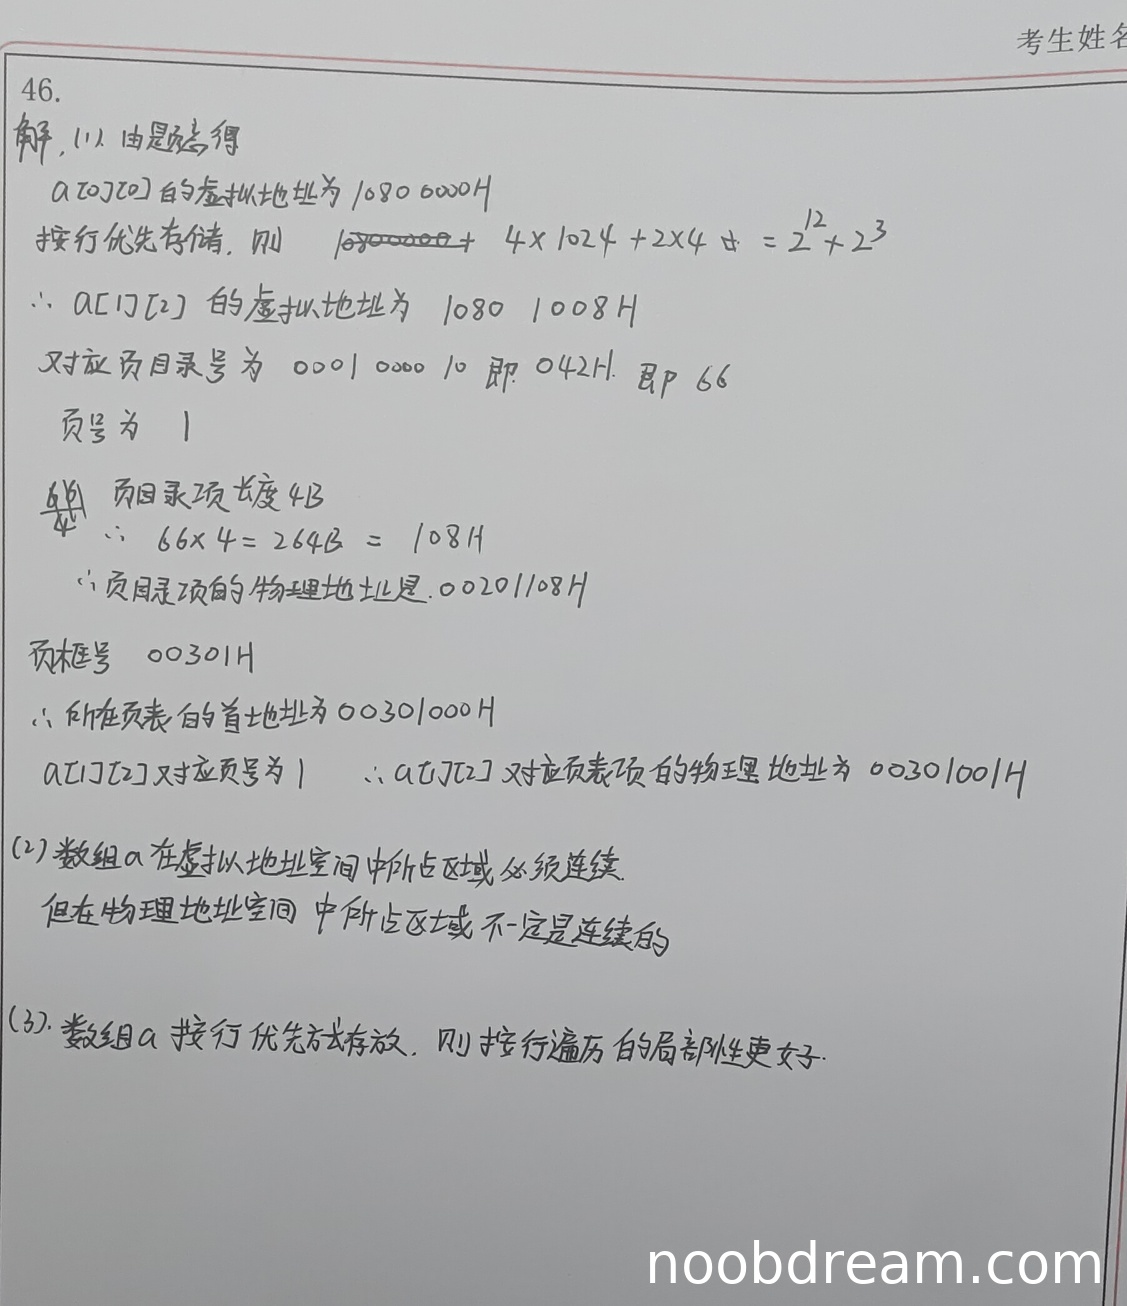 考生姓名
46.
解. (1). 由题意得
a[0][0]的虚拟地址为 1080 0000H
按行优先存储, 则 10800000+ 4×1024+2×4 = 2^12+2^3
∴ a[1][2] 的虚拟地址为 1080 1008H
对应页目录号为 0001 0000 10 即 042H. 即 66
页号为 1
页目录项长度 4B
∴ 66×4=264B = 108H
∴页目录项的物理地址是.00201108H
页框号 00301H
∴所在页表的首地址为00301000H
a[1][2]对应页号为1 ∴a[1][2]对应页表项的物理地址为 00301001H
(2)数组a在虚拟地址空间中所占区域必须连续.
但在物理地址空间中所占区域不一定是连续的
(3).数组a按行优先方式存放. 则按行遍历的局部性更好.
noobdream.com